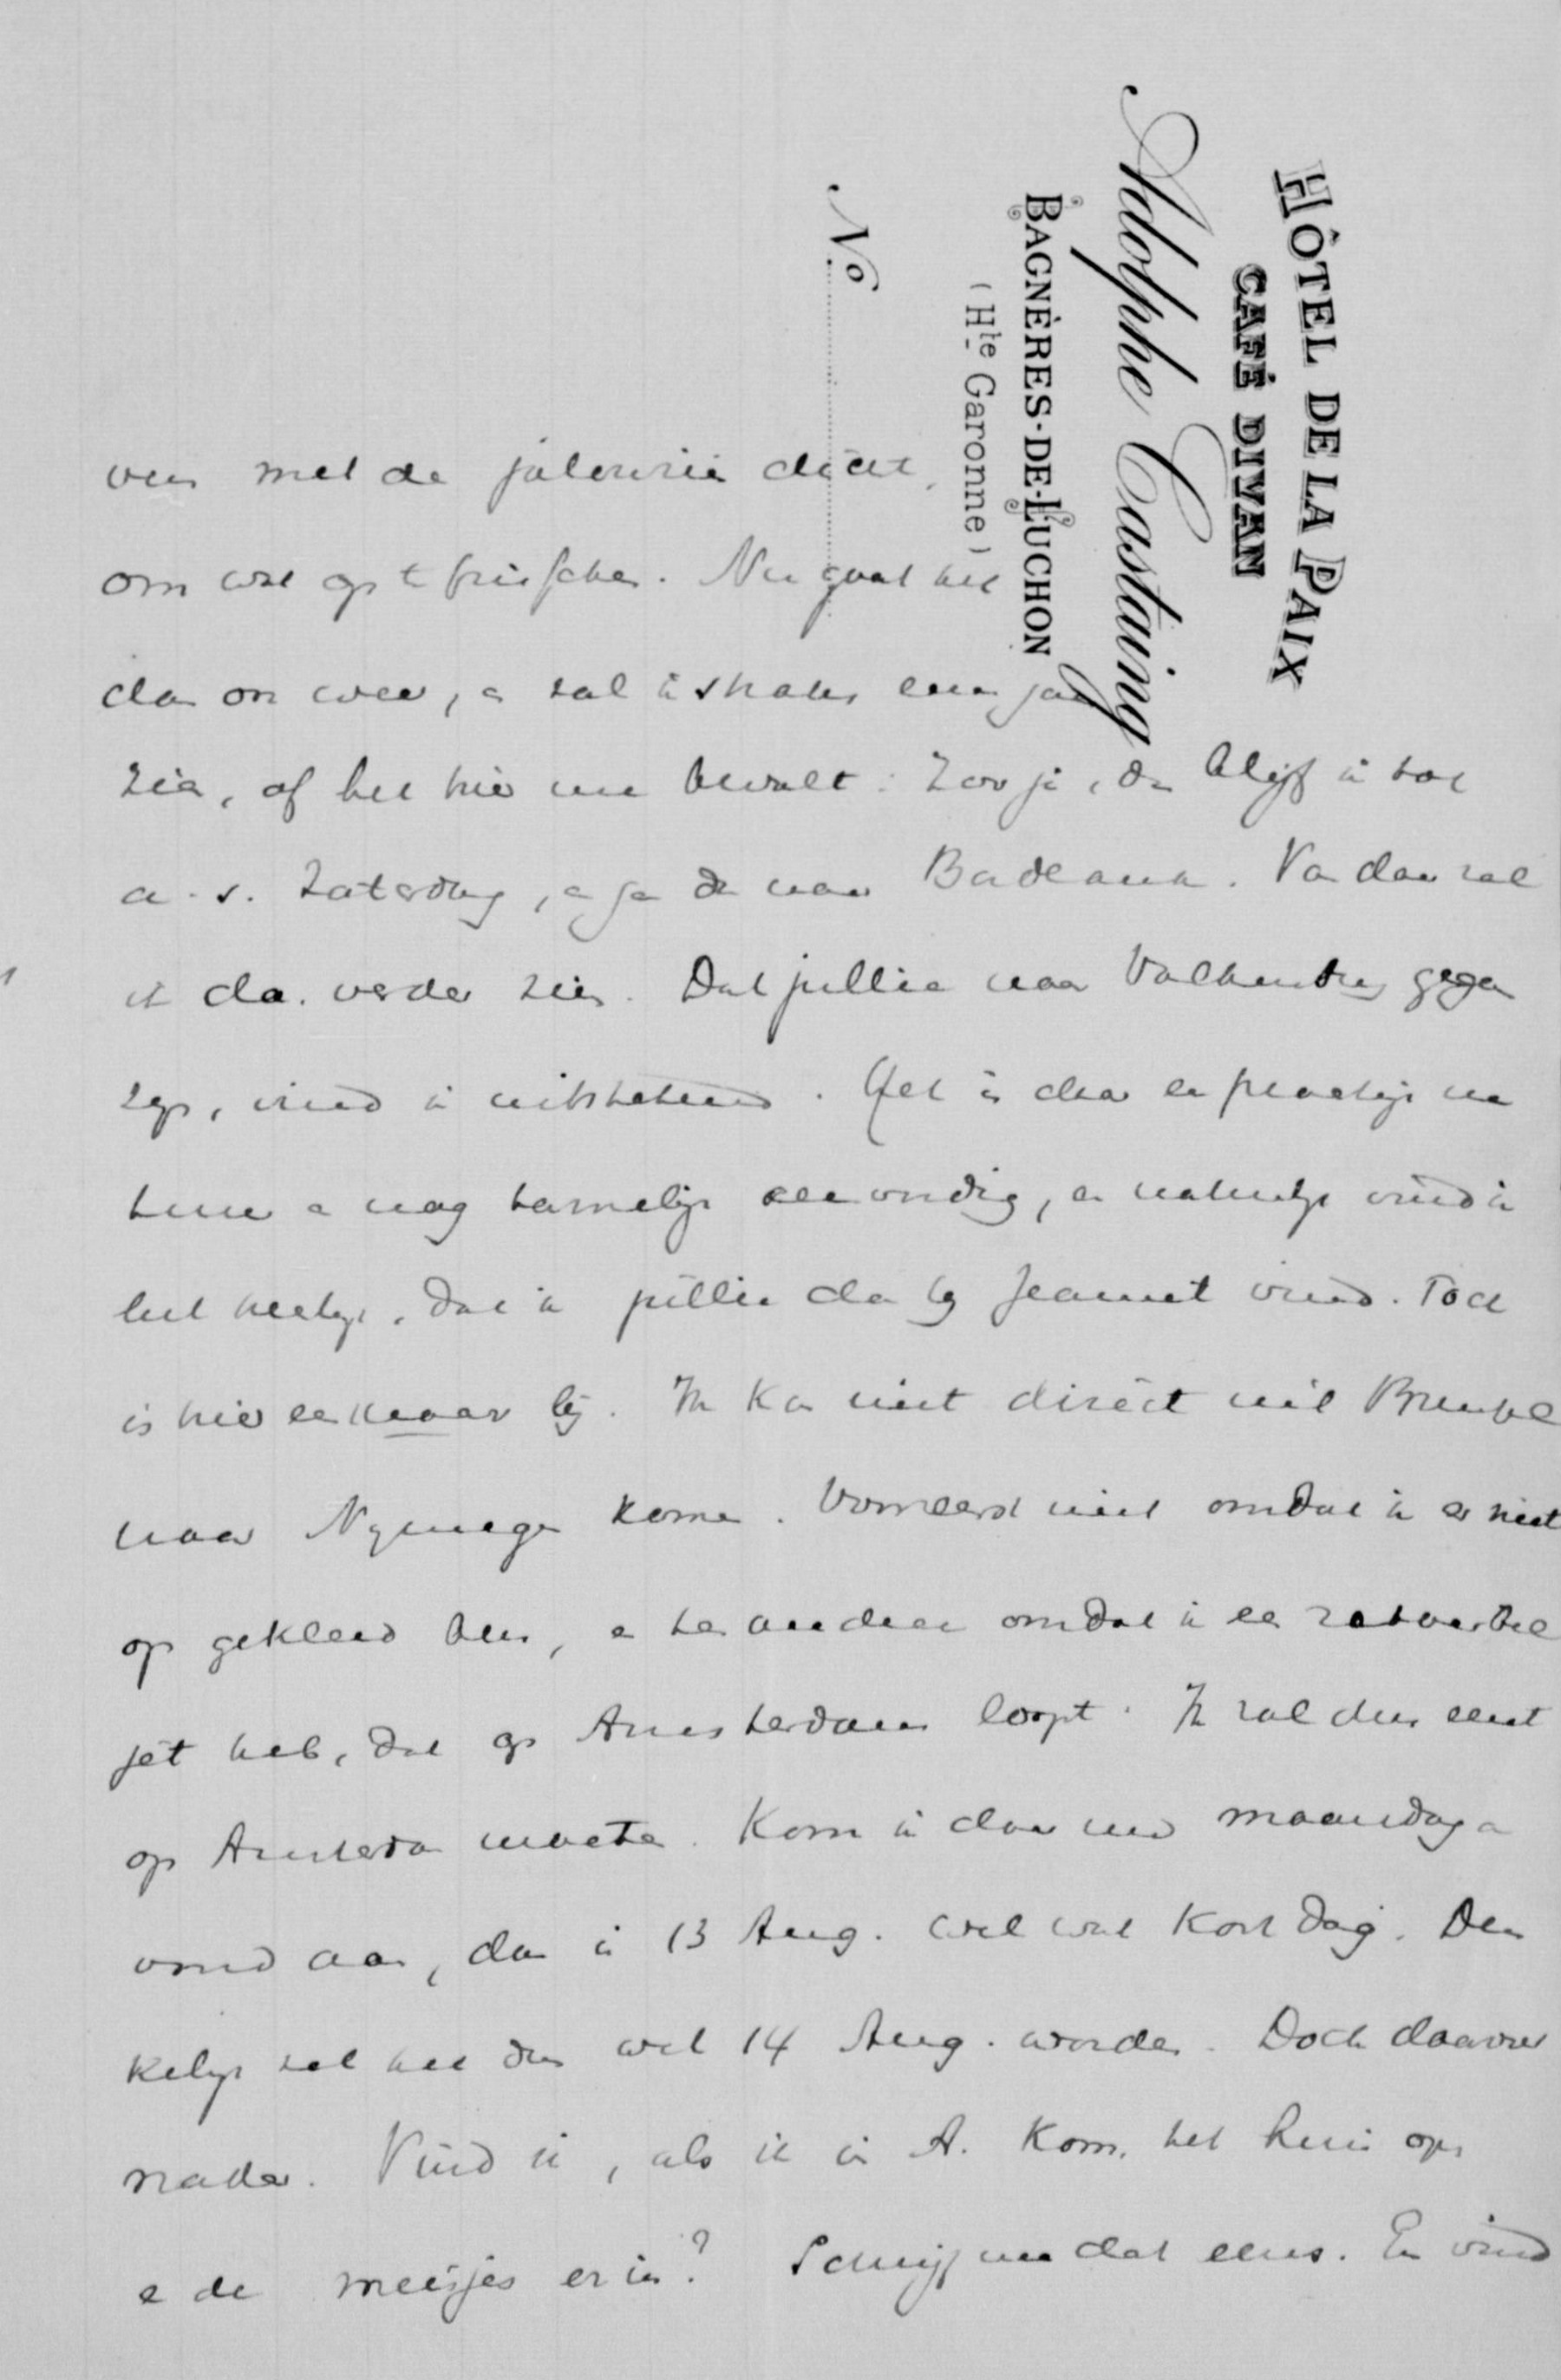 HÔTEL DE LA PAIX
CAFÉ DIVAN
Adolphe Castaing
BAGNÈRES-DE-LUCHON
(Hte Garonne)
No
ven met de jalousiën dicht,
om wat op t frisschen. Nu gaat het
dan on weer, en zal ik straks eens gaan
zien, of het hier me bevalt. Zoo ja, dan blijf ik tot
a.s. Zaterdag, en ga dan naar Bordeaux. Van daar zal
ik dan verder zien. Dat jullie naar Valkenburg gegaan
zijn, vind ik uitstekend. Het is daar een prachtige na
tuur en nog tamelijk eenvoudig, en natuurlijk vind ik
het heerlijk, dat ik jullie dan bij Jeannet vind. Toch
is hier een maar bij. Ik kan niet direct uit Brussel
naar Nymegen komen. Vooreerst niet omdat ik er niet
op gekleed ben, en ten anderen omdat ik een retourbil
jet heb, dat op Amsterdam loopt. Ik zal dus eerst
op Amsterdam moeten. Kom ik daar nu maandag a
vond aan, dan is 13 Aug. wel wat kort dag. Den
kelijk zal het dus wel 14 Aug. worden. Doch daarover
nader. Vind ik, als ik in A. kom, het huis open
en de meisjes er in? Schrijf me dat eens. En vind